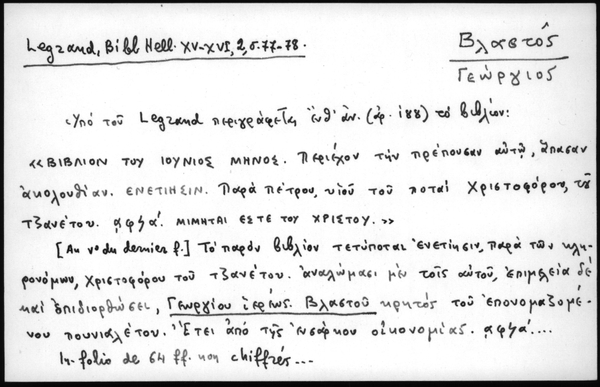 Legrand, Bibl Hell. XV-XVI, 2, σ. 77-78.
Βλαστός
Γεώργιος
Ὑπό τοῦ Legrand περιγράφεται ἔνθ' ἀν. (ἀρ. 188) τό βιβλίον:
«ΒΙΒΛΙΟΝ ΤΟΥ ΙΟΥΝΙΟΣ ΜΗΝΟΣ. Περιέχον τήν πρέπουσαν αὐτῷ, ἅπασαν
ἀκολουθίαν. ΕΝΕΤΙΗΣΙΝ. Παρά Πέτρου, υἱοῦ τοῦ ποταί Χριστοφόρου, τοῦ
τζανέτου. ͵αφξά. ΜΙΜΗΤΑΙ ΕΣΤΕ ΤΟΥ ΧΡΙΣΤΟΥ.»
[Au vº du dernier f.] Τό παρόν βιβλίον τετύπωται ἐνετίησιν, παρά τῶν κλη-
ρονόμων, χριστοφόρου τοῦ τζανέτου. ἀναλώμασι μέν τοῖς αὐτοῦ, ἐπιμελεία δέ
καί ἐπιδιορθώσει, Γεωργίου ἱερέως. Βλαστοῦ κρητός τοῦ ἐπονομαζομέ-
νου πουνιαλέτου. Ἔτει ἀπό τῆς ἐνσάρκου οἰκονομίας. ͵αφξά....
In-folio de 64 ff. non chiffrés...